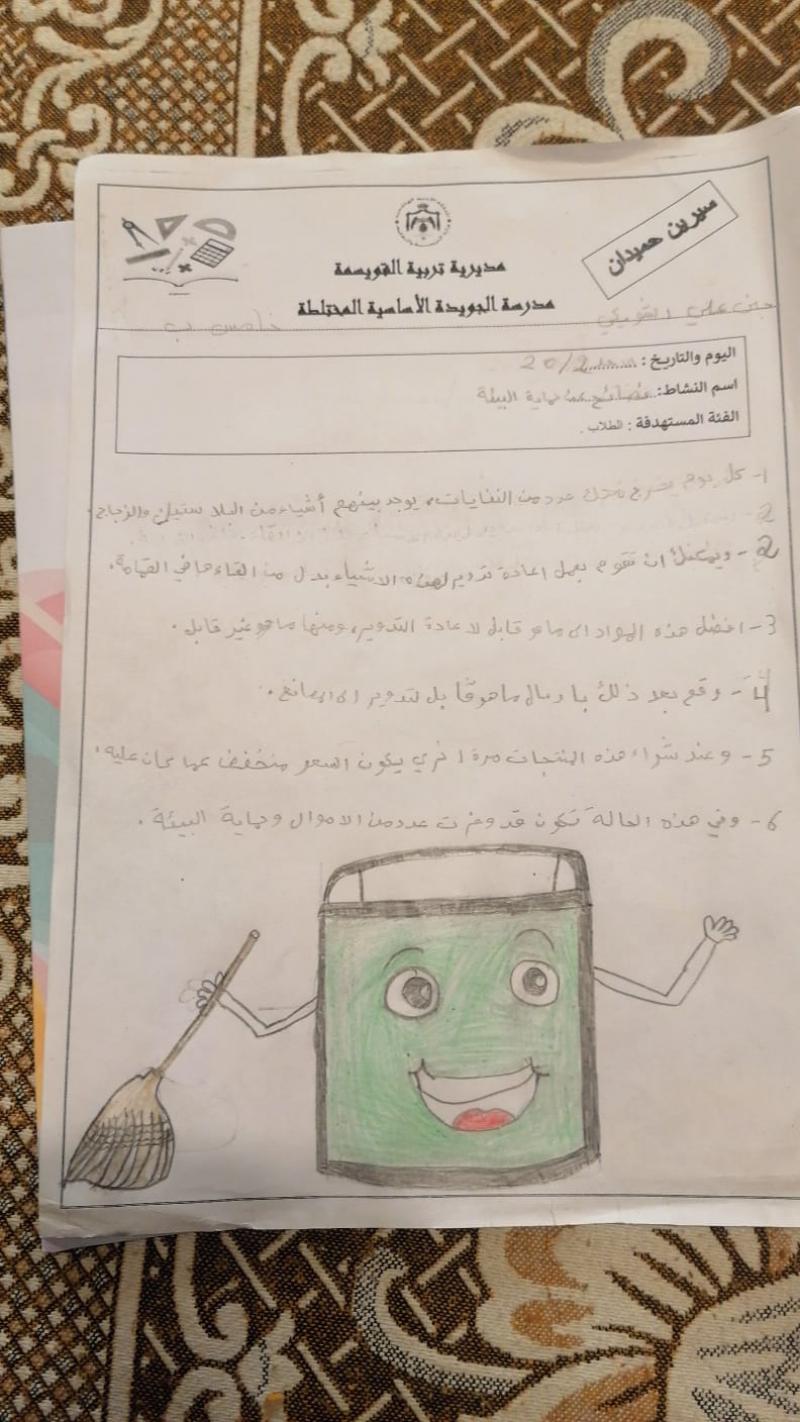 سيرين حميدان
مديرية تربية القويسمة
مدرسة الجويدة الأساسية المختلطة
علي القويكي
خامس ب
اليوم والتاريخ : 20/2
اسم النشاط: نصائح حماية البيئة
الفئة المستهدفة : الطلاب .
1- كل يوم يخرج عدد من النفايات، يوجد بينهم أشياء من البلاستيك والزجاج
2- ويمكنك ان تقوم بعمل اعادة تدوير لهذه الاشياء بدل من القاءها في القمامة.
3- افضل هذه المواد الى ما هو قابل لاعادة التدوير، ومنها ما هو غير قابل.
4- وقم بعد ذلك بارسال ما هو قابل لتدوير الى المصانع.
5- وعند شراء هذه المنتجات مرة اخرى يكون السعر منخفض عما كان عليه.
6- وفي هذه الحالة تكون قد وفرت عدد من الاموال وحماية البيئة.